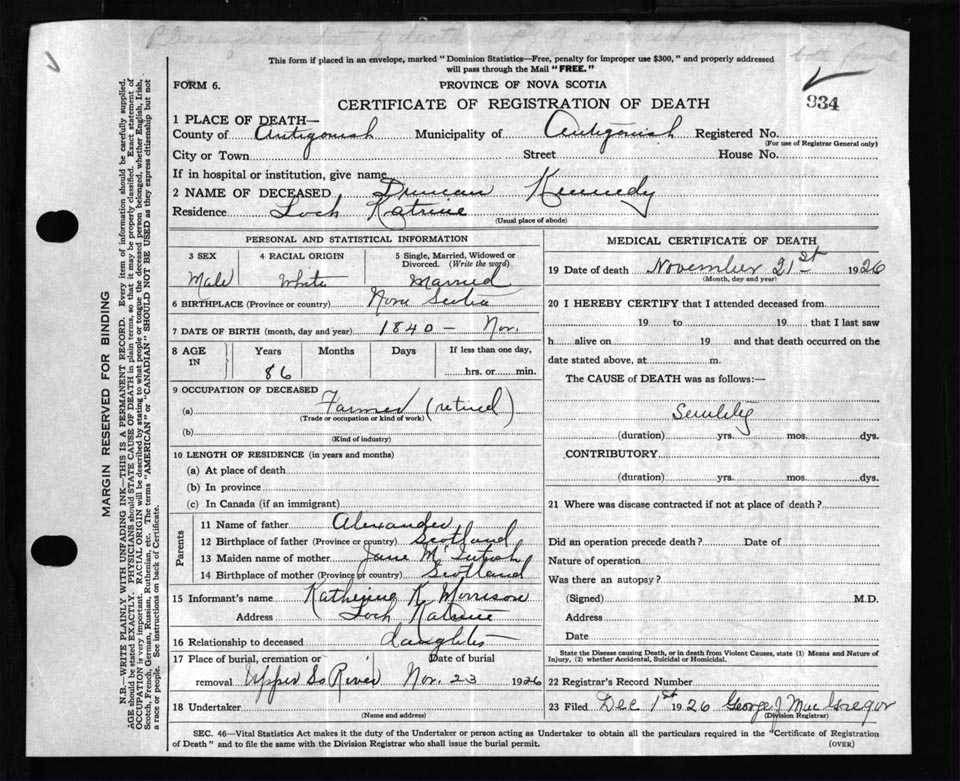 This form if placed in an envelope, marked "Dominion Statistics—Free, penalty for improper use $300," and properly addressed
will pass through the Mail "FREE."
FORM 6.
PROVINCE OF NOVA SCOTIA
CERTIFICATE OF REGISTRATION OF DEATH
934
1 PLACE OF DEATH—
County of Antigonish Municipality of Antigonish Registered No.
(For use of Registrar General only)
City or Town Street House No.
If in hospital or institution, give name
2 NAME OF DECEASED Duncan Kennedy
Residence Loch Katrine
(Usual place of abode)
PERSONAL AND STATISTICAL INFORMATION
3 SEX 4 RACIAL ORIGIN 5 Single, Married, Widowed or Divorced. (Write the word)
Male White Married
6 BIRTHPLACE (Province or country) Nova Scotia
7 DATE OF BIRTH (month, day and year) 1840 – Nov.
8 AGE IN Years Months Days If less than one day,
86 hrs. or min.
9 OCCUPATION OF DECEASED
(a) Farmer (retired)
(Trade or occupation or kind of work)
(b)
(Kind of industry)
10 LENGTH OF RESIDENCE (in years and months)
(a) At place of death
(b) In province
(c) In Canada (if an immigrant)
Parents
11 Name of father Alexander
12 Birthplace of father (Province or country) Scotland
13 Maiden name of mother Jane McIntosh
14 Birthplace of mother (Province or country) Scotland
15 Informant's name Katherine K. Morrison
Address Loch Katrine
16 Relationship to deceased daughter
17 Place of burial, cremation or Date of burial
removal Upper So River Nov. 23 1926
18 Undertaker
(Name and address)
MEDICAL CERTIFICATE OF DEATH
19 Date of death November 21st 1926
(Month, day and year)
20 I HEREBY CERTIFY that I attended deceased from
19 to 19 that I last saw
h alive on 19 and that death occurred on the
date stated above, at m.
The CAUSE of DEATH was as follows:—
Senility
(duration) yrs. mos. dys.
CONTRIBUTORY
(duration) yrs. mos. dys.
21 Where was disease contracted if not at place of death?
Did an operation precede death? Date of
Nature of operation
Was there an autopsy?
(Signed) M.D.
Address
Date
State the Disease causing Death, or in death from Violent Causes, state (1) Means and Nature of
Injury, (2) whether Accidental, Suicidal or Homicidal.
22 Registrar's Record Number
23 Filed Dec 1st 1926 George J. MacGregor
(Division Registrar)
SEC. 46—Vital Statistics Act makes it the duty of the Undertaker or person acting as Undertaker to obtain all the particulars required in the "Certificate of Registration
of Death" and to file the same with the Division Registrar who shall issue the burial permit.
(OVER)
MARGIN RESERVED FOR BINDING
N.B.—WRITE PLAINLY WITH UNFADING INK—THIS IS A PERMANENT RECORD. Every item of information should be carefully supplied.
AGE should be stated EXACTLY. PHYSICIANS should STATE CAUSE OF DEATH in plain terms, so that it may be properly classified. Exact statement of
OCCUPATION is very important. RACIAL ORIGIN will be described by stating to what people or tongue the deceased person belonged, whether English, Irish,
Scotch, French, German, Russian, Ruthenian, etc. The terms "AMERICAN" or "CANADIAN" SHOULD NOT BE USED as they express citizenship but not
a race or people. See instructions on back of Certificate.